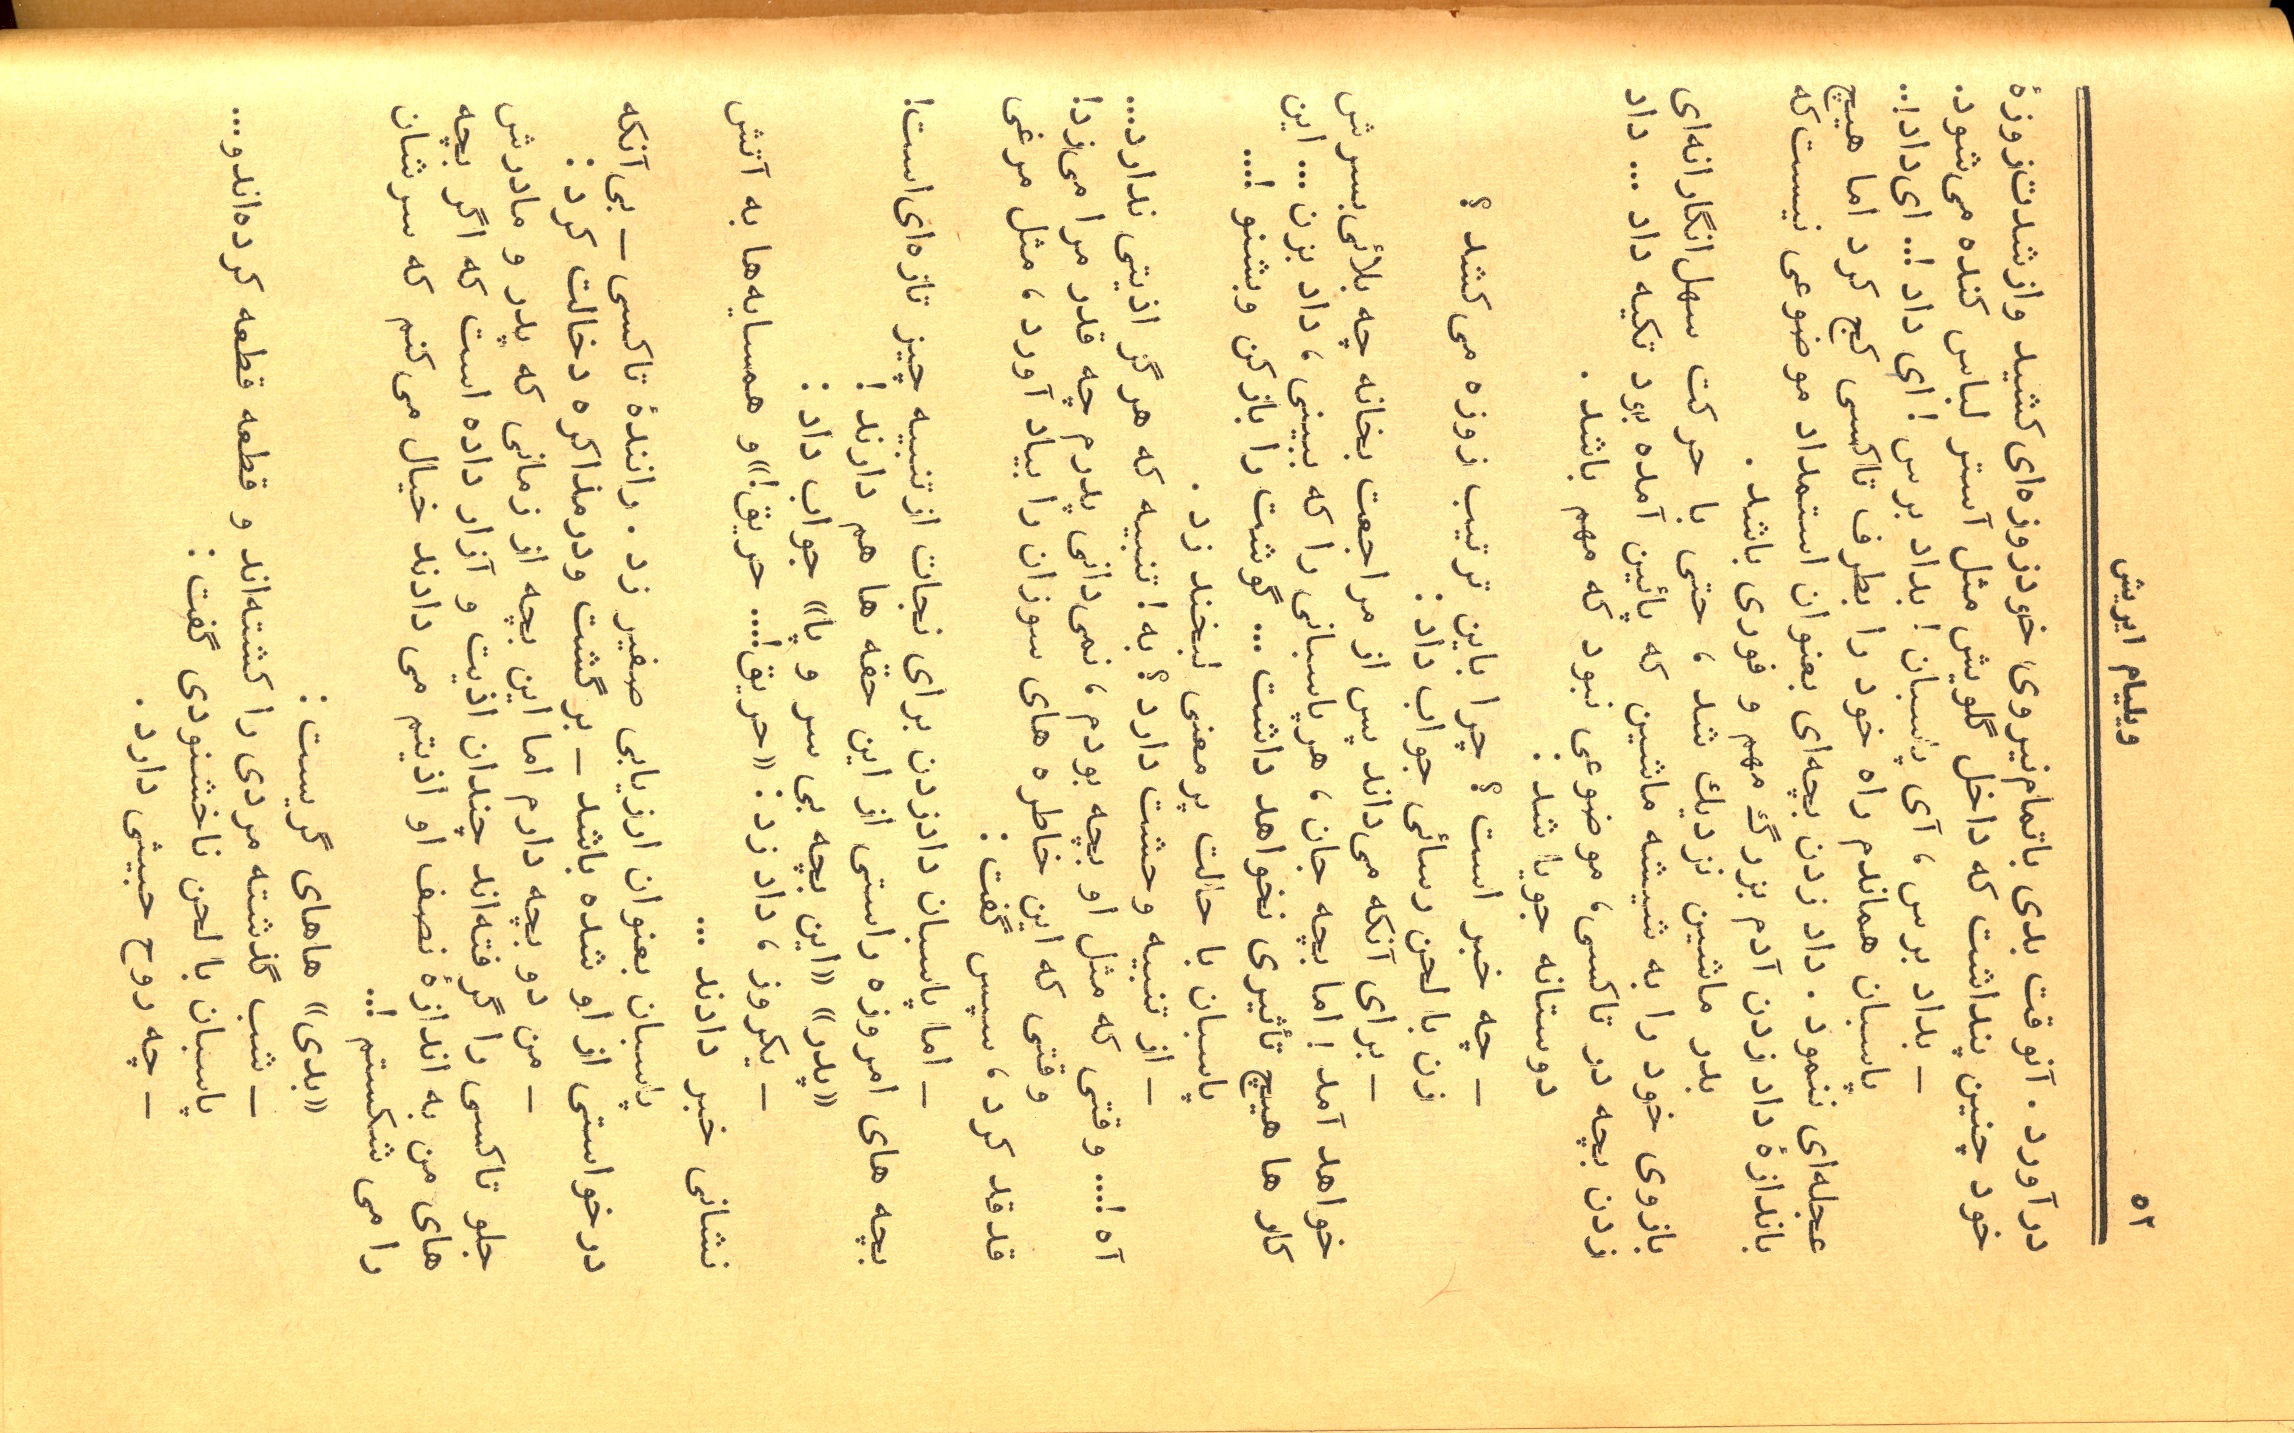 ۵۲
ویلیام ایریش
درآورد. آنوقت بدی باتمام نیروی خود زوزه‌ای کشید و از شدت زوزهٔ
خود چنین پنداشت که داخل گلویش مثل آستر لباس کنده می‌شود.
— بداد برس، آی پاسبان! بداد برس! ای داد!.. ای داد!..
پاسبان هماندم راه خود را بطرف تاکسی کج کرد اما هیچ
عجله‌ای ننمود. داد زدن بچه‌ای بعنوان استمداد موضوعی نیست که
باندازهٔ داد زدن آدم بزرگ مهم و فوری باشد.
بدر ماشین نزدیك شد، حتی با حرکت سهل‌انگارانه‌ای
بازوی خود را به شیشه ماشین که پائین آمده بود تکیه داد... داد
زدن بچه در تاکسی، موضوعی نبود که مهم باشد.
دوستانه جویا شد:
— چه خبر است؟ چرا باین ترتیب زوزه می‌کشد؟
زن با لحن رسائی جواب داد:
— برای آنکه می‌داند پس از مراجعت بخانه چه بلائی بسرش
خواهد آمد! اما بچه جان، هر پاسبانی را که ببینی، داد بزن... این
کارها هیچ تأثیری نخواهد داشت... گوشت را باز کن و بشنو!...
پاسبان با حالت پرمعنی لبخند زد.
— از تنبیه وحشت دارد؟ به! تنبیه که هرگز اذیتی ندارد...
آه!... وقتی که مثل او بچه بودم، نمی‌دانی پدرم چه قدر مرا می‌زد!
وقتی که این خاطره‌های سوزان را بیاد آورد، مثل مرغی
قدقد کرد، سپس گفت:
— اما پاسبان دادزدن برای نجات از تنبیه چیز تازه‌ای‌است!
بچه‌های امروزه راستی از این حقه‌ها هم دارند!
«پدر» «این بچه بی سر و پا» جواب داد:
— یکروز، داد زد: «حریق!... حریق!» و همسایه‌ها به آتش
نشانی خبر دادند...
پاسبان بعنوان ارزیابی صفیر زد. رانندهٔ تاکسی — بی‌آنکه
درخواستی از او شده باشد — برگشت و در مذاکره دخالت کرد:
— من دو بچه دارم اما این بچه از زمانی که پدر و مادرش
جلو تاکسی را گرفته‌اند چندان اذیت و آزار داده است که اگر بچه
های من به اندازهٔ نصف او اذیتم می دادند خیال می‌کنم که سرشان
را می شکستم!..
«بدی» هاهای گریست:
— شب گذشته مردی را کشته‌اند و قطعه قطعه کرده‌اند و...
پاسبان با لحن ناخشنودی گفت:
— چه روح خبیثی دارد.